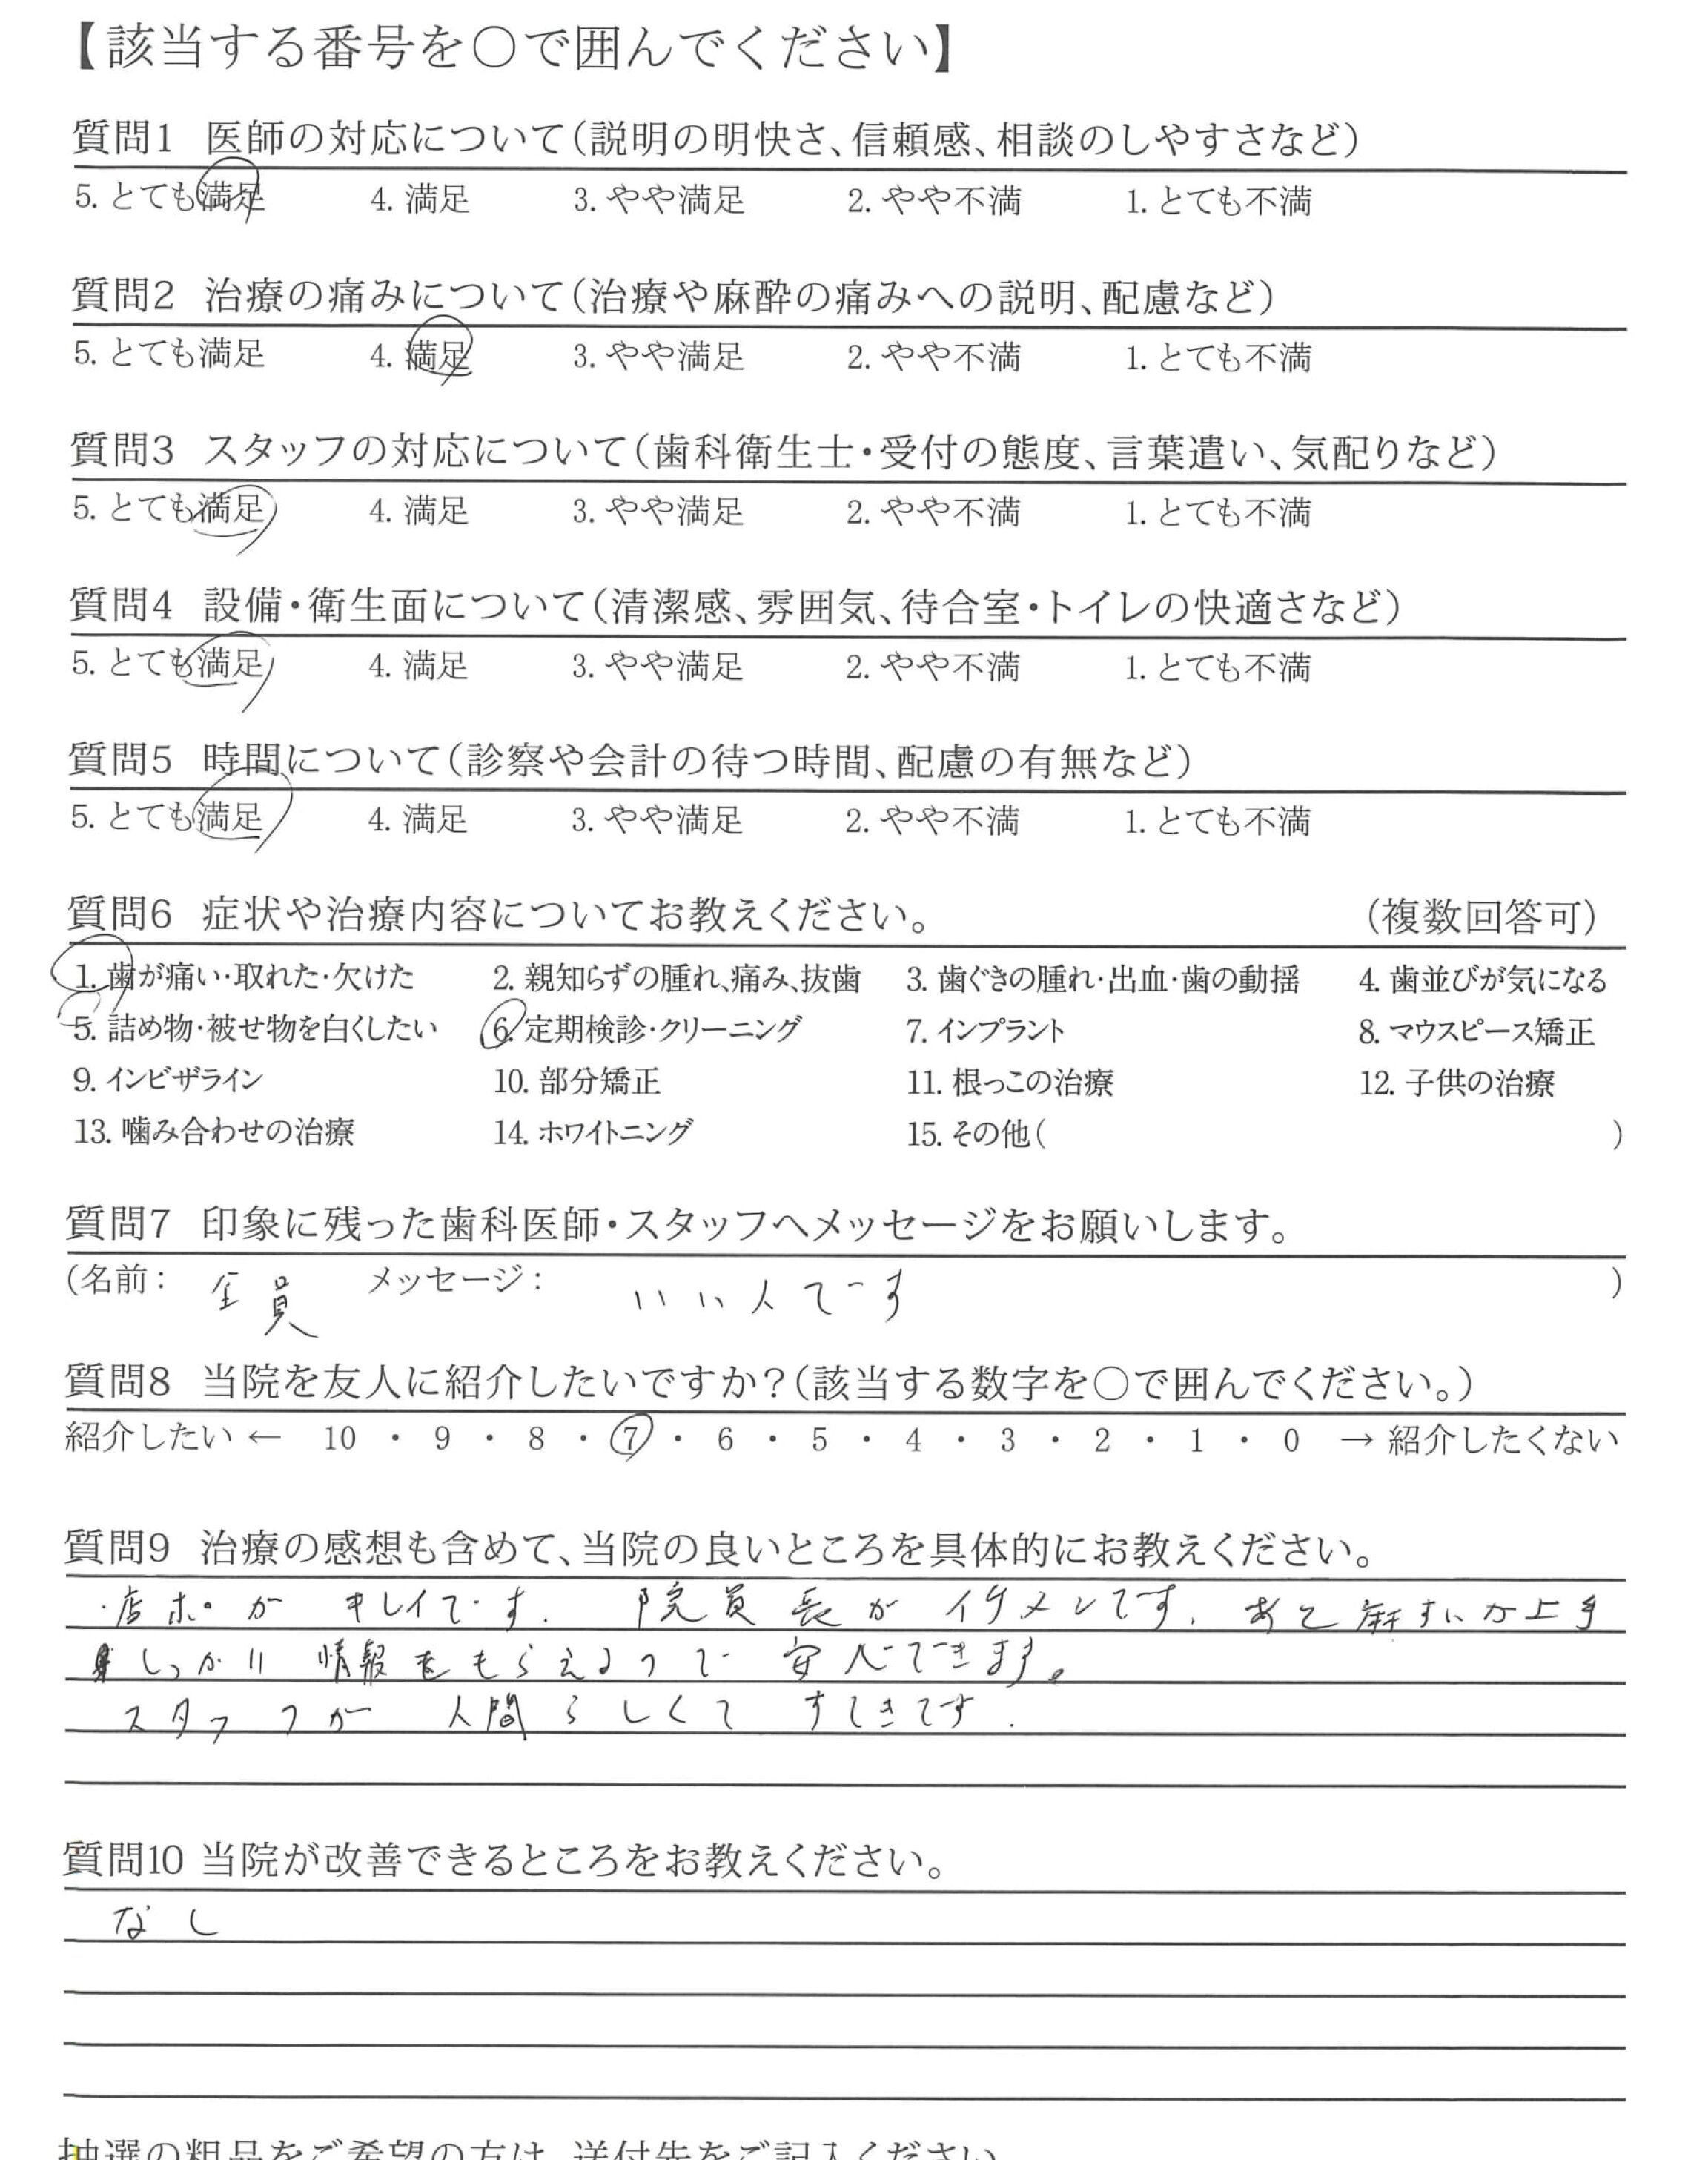 【該当する番号を○で囲んでください】
質問1 医師の対応について(説明の明快さ、信頼感、相談のしやすさなど)
5. とても満足 4. 満足 3. やや満足 2. やや不満 1. とても不満
質問2 治療の痛みについて(治療や麻酔の痛みへの説明、配慮など)
5. とても満足 4. 満足 3. やや満足 2. やや不満 1. とても不満
質問3 スタッフの対応について(歯科衛生士・受付の態度、言葉遣い、気配りなど)
5. とても満足 4. 満足 3. やや満足 2. やや不満 1. とても不満
質問4 設備・衛生面について(清潔感、雰囲気、待合室・トイレの快適さなど)
5. とても満足 4. 満足 3. やや満足 2. やや不満 1. とても不満
質問5 時間について(診察や会計の待つ時間、配慮の有無など)
5. とても満足 4. 満足 3. やや満足 2. やや不満 1. とても不満
質問6 症状や治療内容についてお教えください。 (複数回答可)
1. 歯が痛い・取れた・欠けた 2. 親知らずの腫れ、痛み、抜歯 3. 歯ぐきの腫れ・出血・歯の動揺 4. 歯並びが気になる
5. 詰め物・被せ物を白くしたい 6. 定期検診・クリーニング 7. インプラント 8. マウスピース矯正
9. インビザライン 10. 部分矯正 11. 根っこの治療 12. 子供の治療
13. 噛み合わせの治療 14. ホワイトニング 15. その他( )
質問7 印象に残った歯科医師・スタッフへメッセージをお願いします。
(名前: 全員 メッセージ: いい人です )
質問8 当院を友人に紹介したいですか?(該当する数字を○で囲んでください。)
紹介したい ← 10 ・ 9 ・ 8 ・ 7 ・ 6 ・ 5 ・ 4 ・ 3 ・ 2 ・ 1 ・ 0 → 紹介したくない
質問9 治療の感想も含めて、当院の良いところを具体的にお教えください。
・店ポが キレイです. 院員長が イケメンです. あと 麻すいが上手
しっかり 情報をもらえるので 安心できます。
スタッフが 人間らしくて すてきです.
質問10 当院が改善できるところをお教えください。
なし
抽選の粗品をご希望の方は、送付先をご記入ください